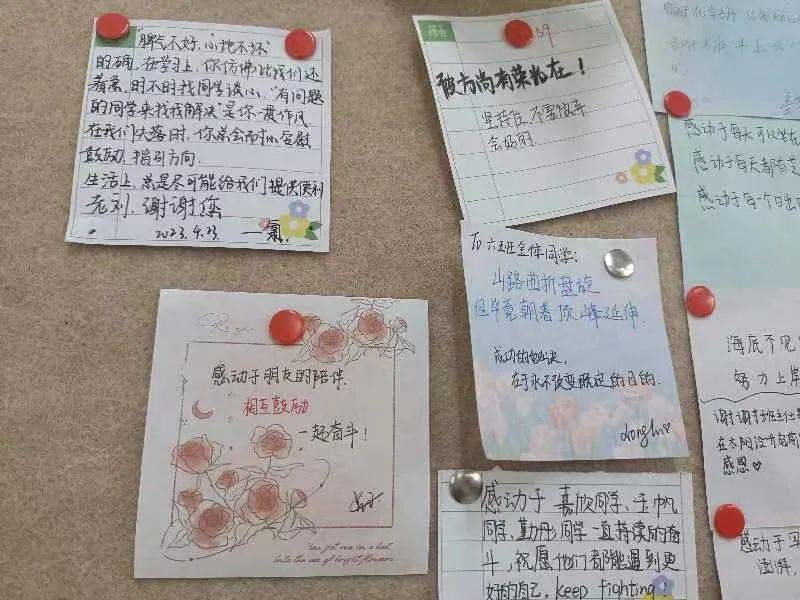 "脾气不好，心地不坏"
的确，在学习上，你仿佛比我们还
着急，时不时找同学谈心，"有问题
的同学来找我解决"是你一贯作风
在我们失落时，你总会而抚慰
鼓励，指引方向.
生活上，总是尽可能给我们提供便利
老刘，谢谢您
2023.4.23.
彼方尚有荣光在！
坚持住 不要放弃
会好的.
To 六五班全体同学：
山路曲折盘旋
但毕竟朝着顶峰延伸.
成功的秘诀，
在于永不改变既定的目的.
感动于朋友的陪伴.
相互鼓励
一起奋斗！
You got me in a boat
Into the sea of bright flowers
感动于 嘉欣同学、玉帆
同学、勤丹同学一直持续的奋
斗，祝愿他们都能遇到更
好的自己. keep fighting!
感动于每天可以坐在
感动于每天都有
感动于每一个日出
海底不见
努力上岸
谢谢班主任
感恩♡
感动于